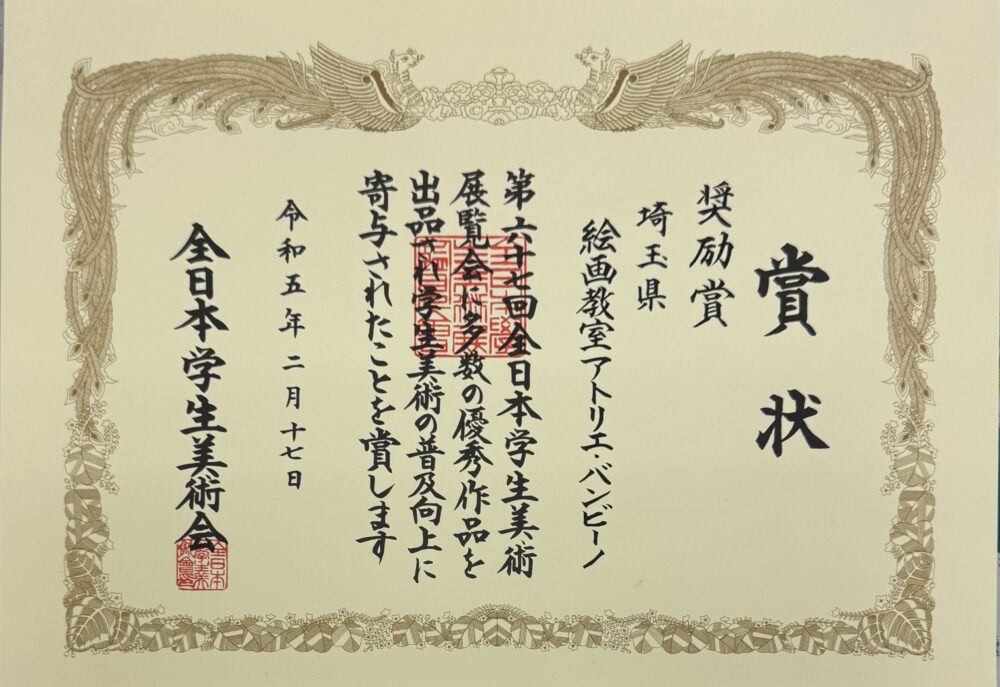 賞状
奨励賞
埼玉県
絵画教室アトリエ・バンビーノ
第六十七回全日本学生美術
展覧会に多数の優秀作品を
出品され学生美術の普及向上に
寄与されたことを賞します
令和五年二月十七日
全日本学生美術会